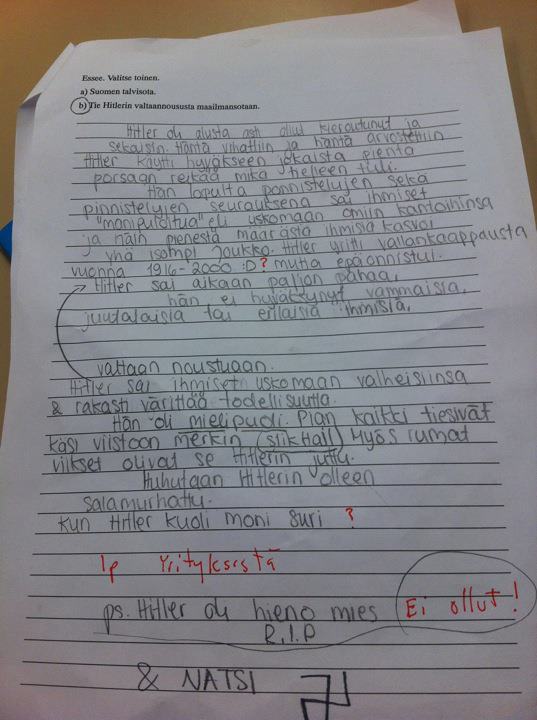 Essee. Valitse toinen.
a) Suomen talvisota.
b) Tie Hitlerin valtaannoususta maailmansotaan.
Hitler oli alusta asti ollut kieroutunut ja
sekaisin. Häntä vihattiin ja häntä arvostettiin
Hitler käytti hyväkseen jokaista pientä
porsaan reikää mikä helleen tuli.
Hän lopulta ponnistelujen sekä
pinnistelujen seurauksena sai ihmiset
"manipuloitua" eli uskomaan omiin kantoihinsa
ja näin pienestä määrästä ihmisiä kasvoi
yhä isompi joukko. Hitler yritti vallankaappausta
vuonna 1916-2000 :D ? mutta epäonnistui.
Hitler sai aikaan paljon pahaa,
hän ei hyväksynyt vammaisia,
juutalaisia tai erilaisia ihmisiä,
valtaan noustuaan.
Hitler sai ihmiset uskomaan valheisiinsa
& rakasti värittää todellisuutta.
Hän oli mielipuoli. Pian kaikki tiesivät
käsi viistoon merkin (siik Hail) Myös rumat
viikset olivat se Hitlerin juttu.
Huhutaan Hitlerin olleen
salamurhattu.
Kun Hitler kuoli moni suri ?
1p Yrityksestä
ps. Hitler oli hieno mies Ei ollut!
R.I.P
& NATSI